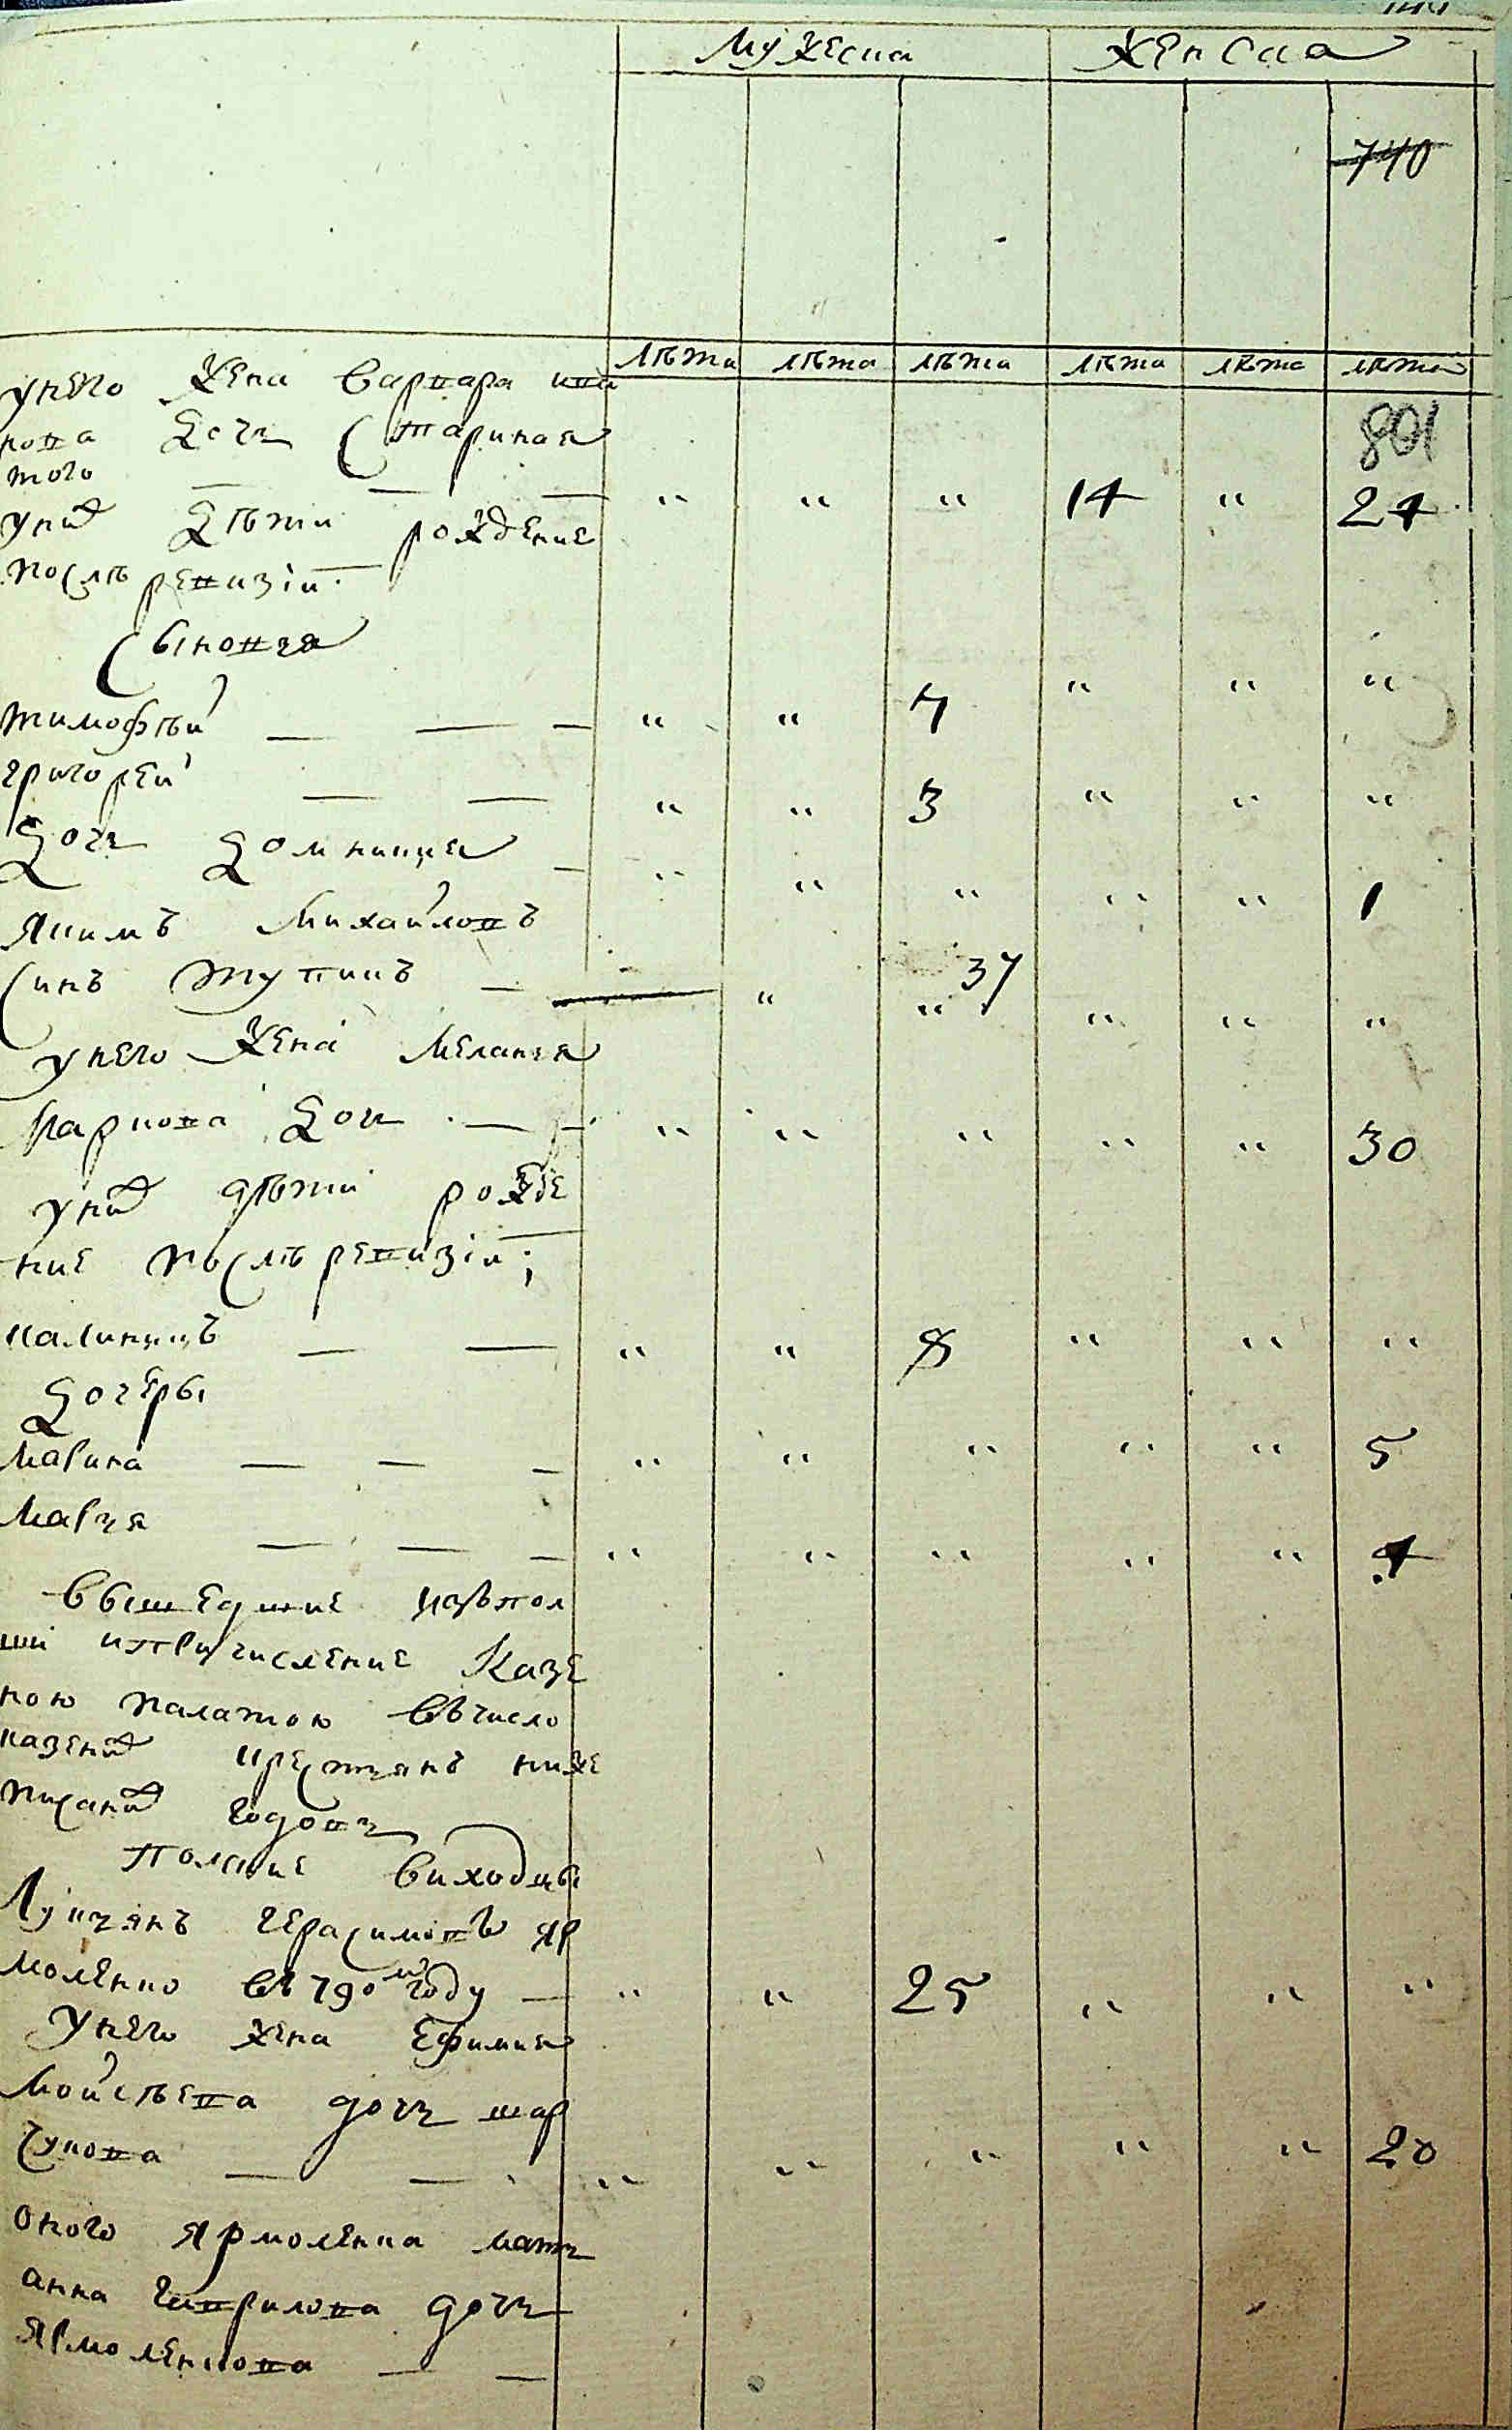 мужеска женска
740
лѣта лѣта лѣта лѣта лѣта лѣта
801
унего жена варвара ива
нова дочь старикая
того — — — " " " 14 " 24
унихъ дѣти рождение
послѣ ревизіи
сыновья
тимофѣй — — — " " 7 " " "
григорей — — " " 3 " " "
дочь домникия — " " " " " 1
якимъ михайловъ
синъ тупикъ — " 37 " " " "
унего жена мелания
карпова дочь — — " " " " " 30
унихъ дѣти рожде
ние послѣ ревизіи;
калиникъ — — " " 8 " " "
дочеры
марина — — — " " " " " 5
маря — — — " " " " " 4
вышедшие изъпол
ши ипричисление казе
ною палатою вьчисло
казенихъ крестянъ ниже
писанихъ годовъ
полские виходцы
лукянъ герасимовъ яр
моленко въ 790мъ году — " " 25 " " "
унего жена ефимия
мойсѣева дочь шар
укова — — " " " " " 20
оного ярмоленка мать
анна гаврилова дочь
ярмоленкова — —